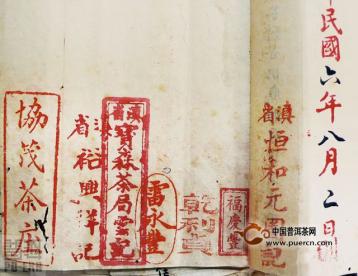 民國六年八月二日
滇省
恒和元圓記
福慶豐
乾利貞
雷永豐
滇省
寶森茶局雲記
滇省
裕興祥記
協茂茶庄
中国普洱茶网
www.puercn.com